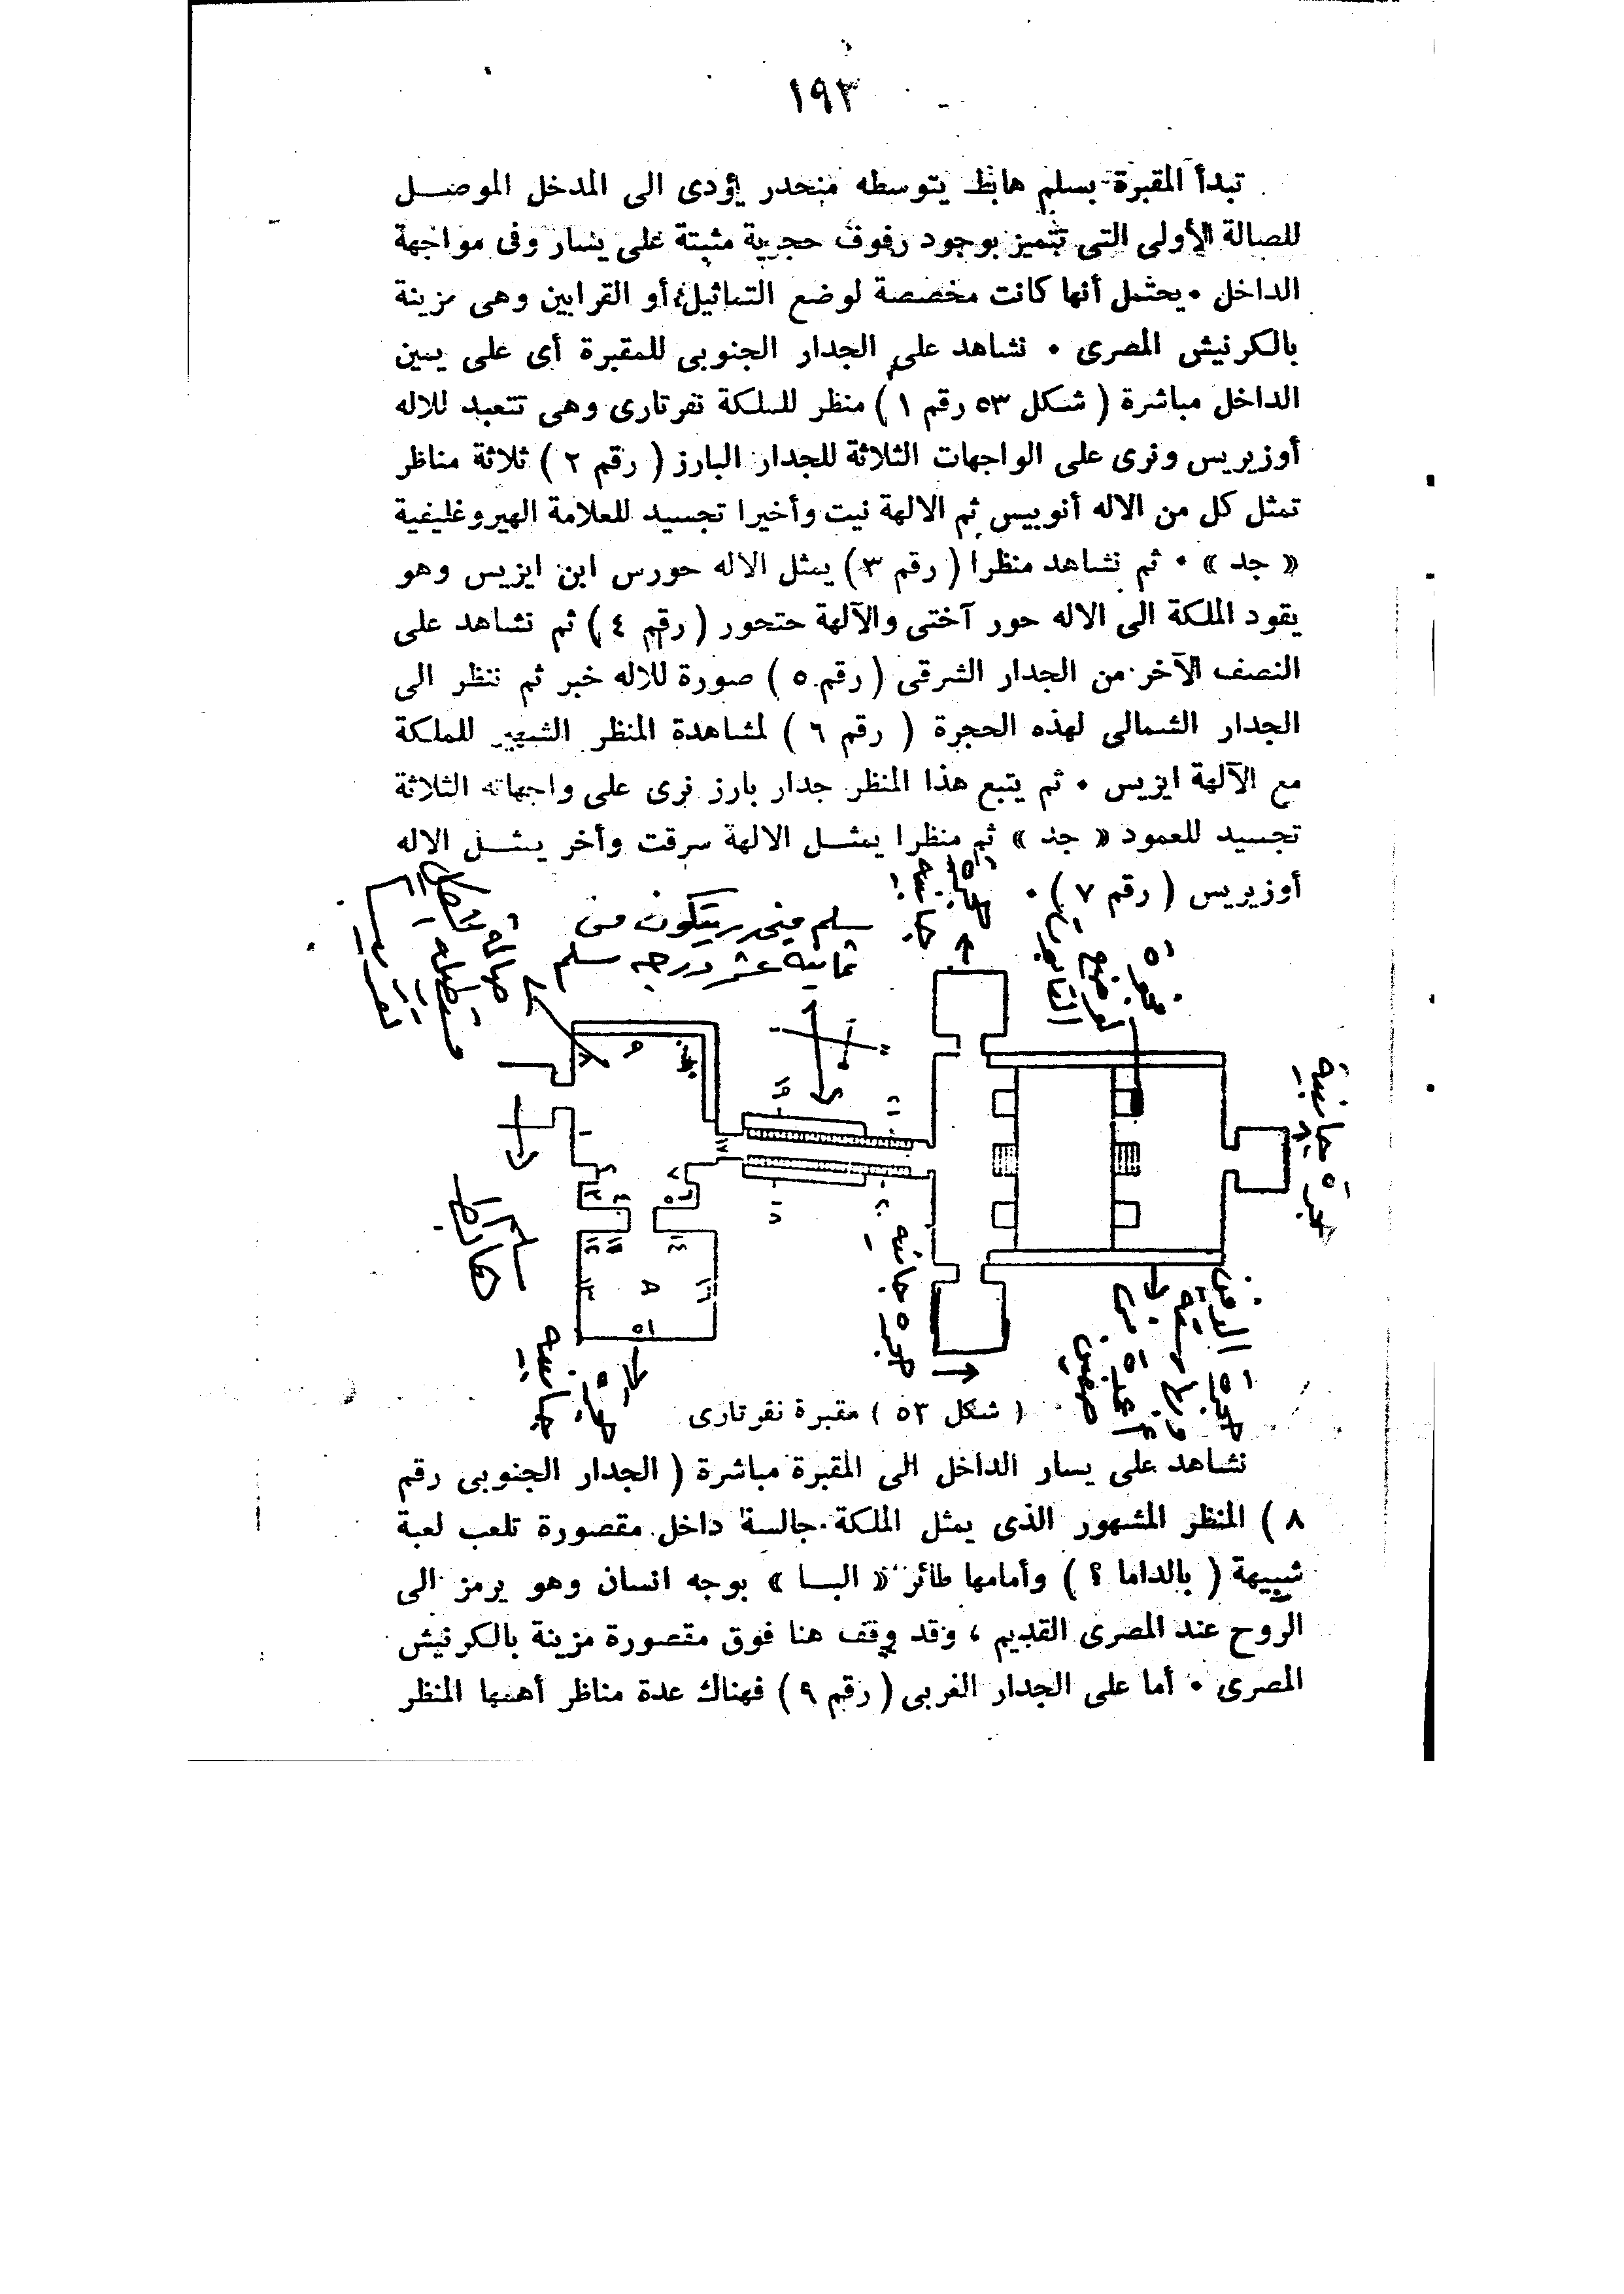 ١٩٣
تبدأ المقبرة بسلم هابط يتوسطه منحدر يؤدى الى المدخل الموصل
للصالة الأولى التى تتميز بوجود رفوف حجرية مثبتة على يسار وفى مواجهة
الداخل ٠ يحتمل أنها كانت مخصصة لوضع التماثيل أو القرابين وهى مزينة
بالكرنيش المصرى ٠ نشاهد على الجدار الجنوبى للمقبرة أى على يمين
الداخل مباشرة ( شكل ٥٣ رقم ١ ) منظر للملكة نفرتارى وهى تتعبد للاله
أوزيريس ونرى على الواجهات الثلاثة للجدار البارز ( رقم ٢ ) ثلاثة مناظر
تمثل كل من الاله أنوبيس ثم الالهة نيت وأخيرا تجسيد للعلامة الهيروغليفية
« جد » ٠ ثم نشاهد منظرا ( رقم ٣ ) يمثل الاله حورس ابن ايزيس وهو
يقود الملكة الى الاله حور آختى والآلهة حتحور ( رقم ٤ ) ثم نشاهد على
النصف الآخر من الجدار الشرقى ( رقم ٥ ) صورة للاله خبر ثم ننظر الى
الجدار الشمالى لهذه الحجرة ( رقم ٦ ) لمشاهدة المنظر الشهير للملكة
مع الآلهة ايزيس ٠ ثم يتبع هذا المنظر جدار بارز نرى على واجهاته الثلاثة
تجسيد للعمود « جد » ثم منظرا يمثل الالهة سرقت وأخر يمثل الاله
أوزيريس ( رقم ٧ ) ٠
سلم منحدر يتكون من
ثمانية عشر درجه سلم
حجرة جانبية
صالة مستطيلة الشكل تقريبا
لوضع التابوت
حجرة جانبية
سلم هابط
حجرة جانبيه
حجرة جانبيه
حجرة الدفن
أعمدة من صفين
( شكل ٥٣ ) مقبرة نفرتارى
نشاهد على يسار الداخل الى المقبرة مباشرة ( الجدار الجنوبى رقم
٨ ) المنظر المشهور الذى يمثل الملكة جالسة داخل مقصورة تلعب لعبة
شبيهة ( بالداما ؟ ) وأمامها طائر « البا » بوجه انسان وهو يرمز الى
الروح عند المصرى القديم ، وقد وقف هنا فوق مقصورة مزينة بالكرنيش
المصرى ٠ أما على الجدار الغربى ( رقم ٩ ) فهناك عدة مناظر أهمها المنظر